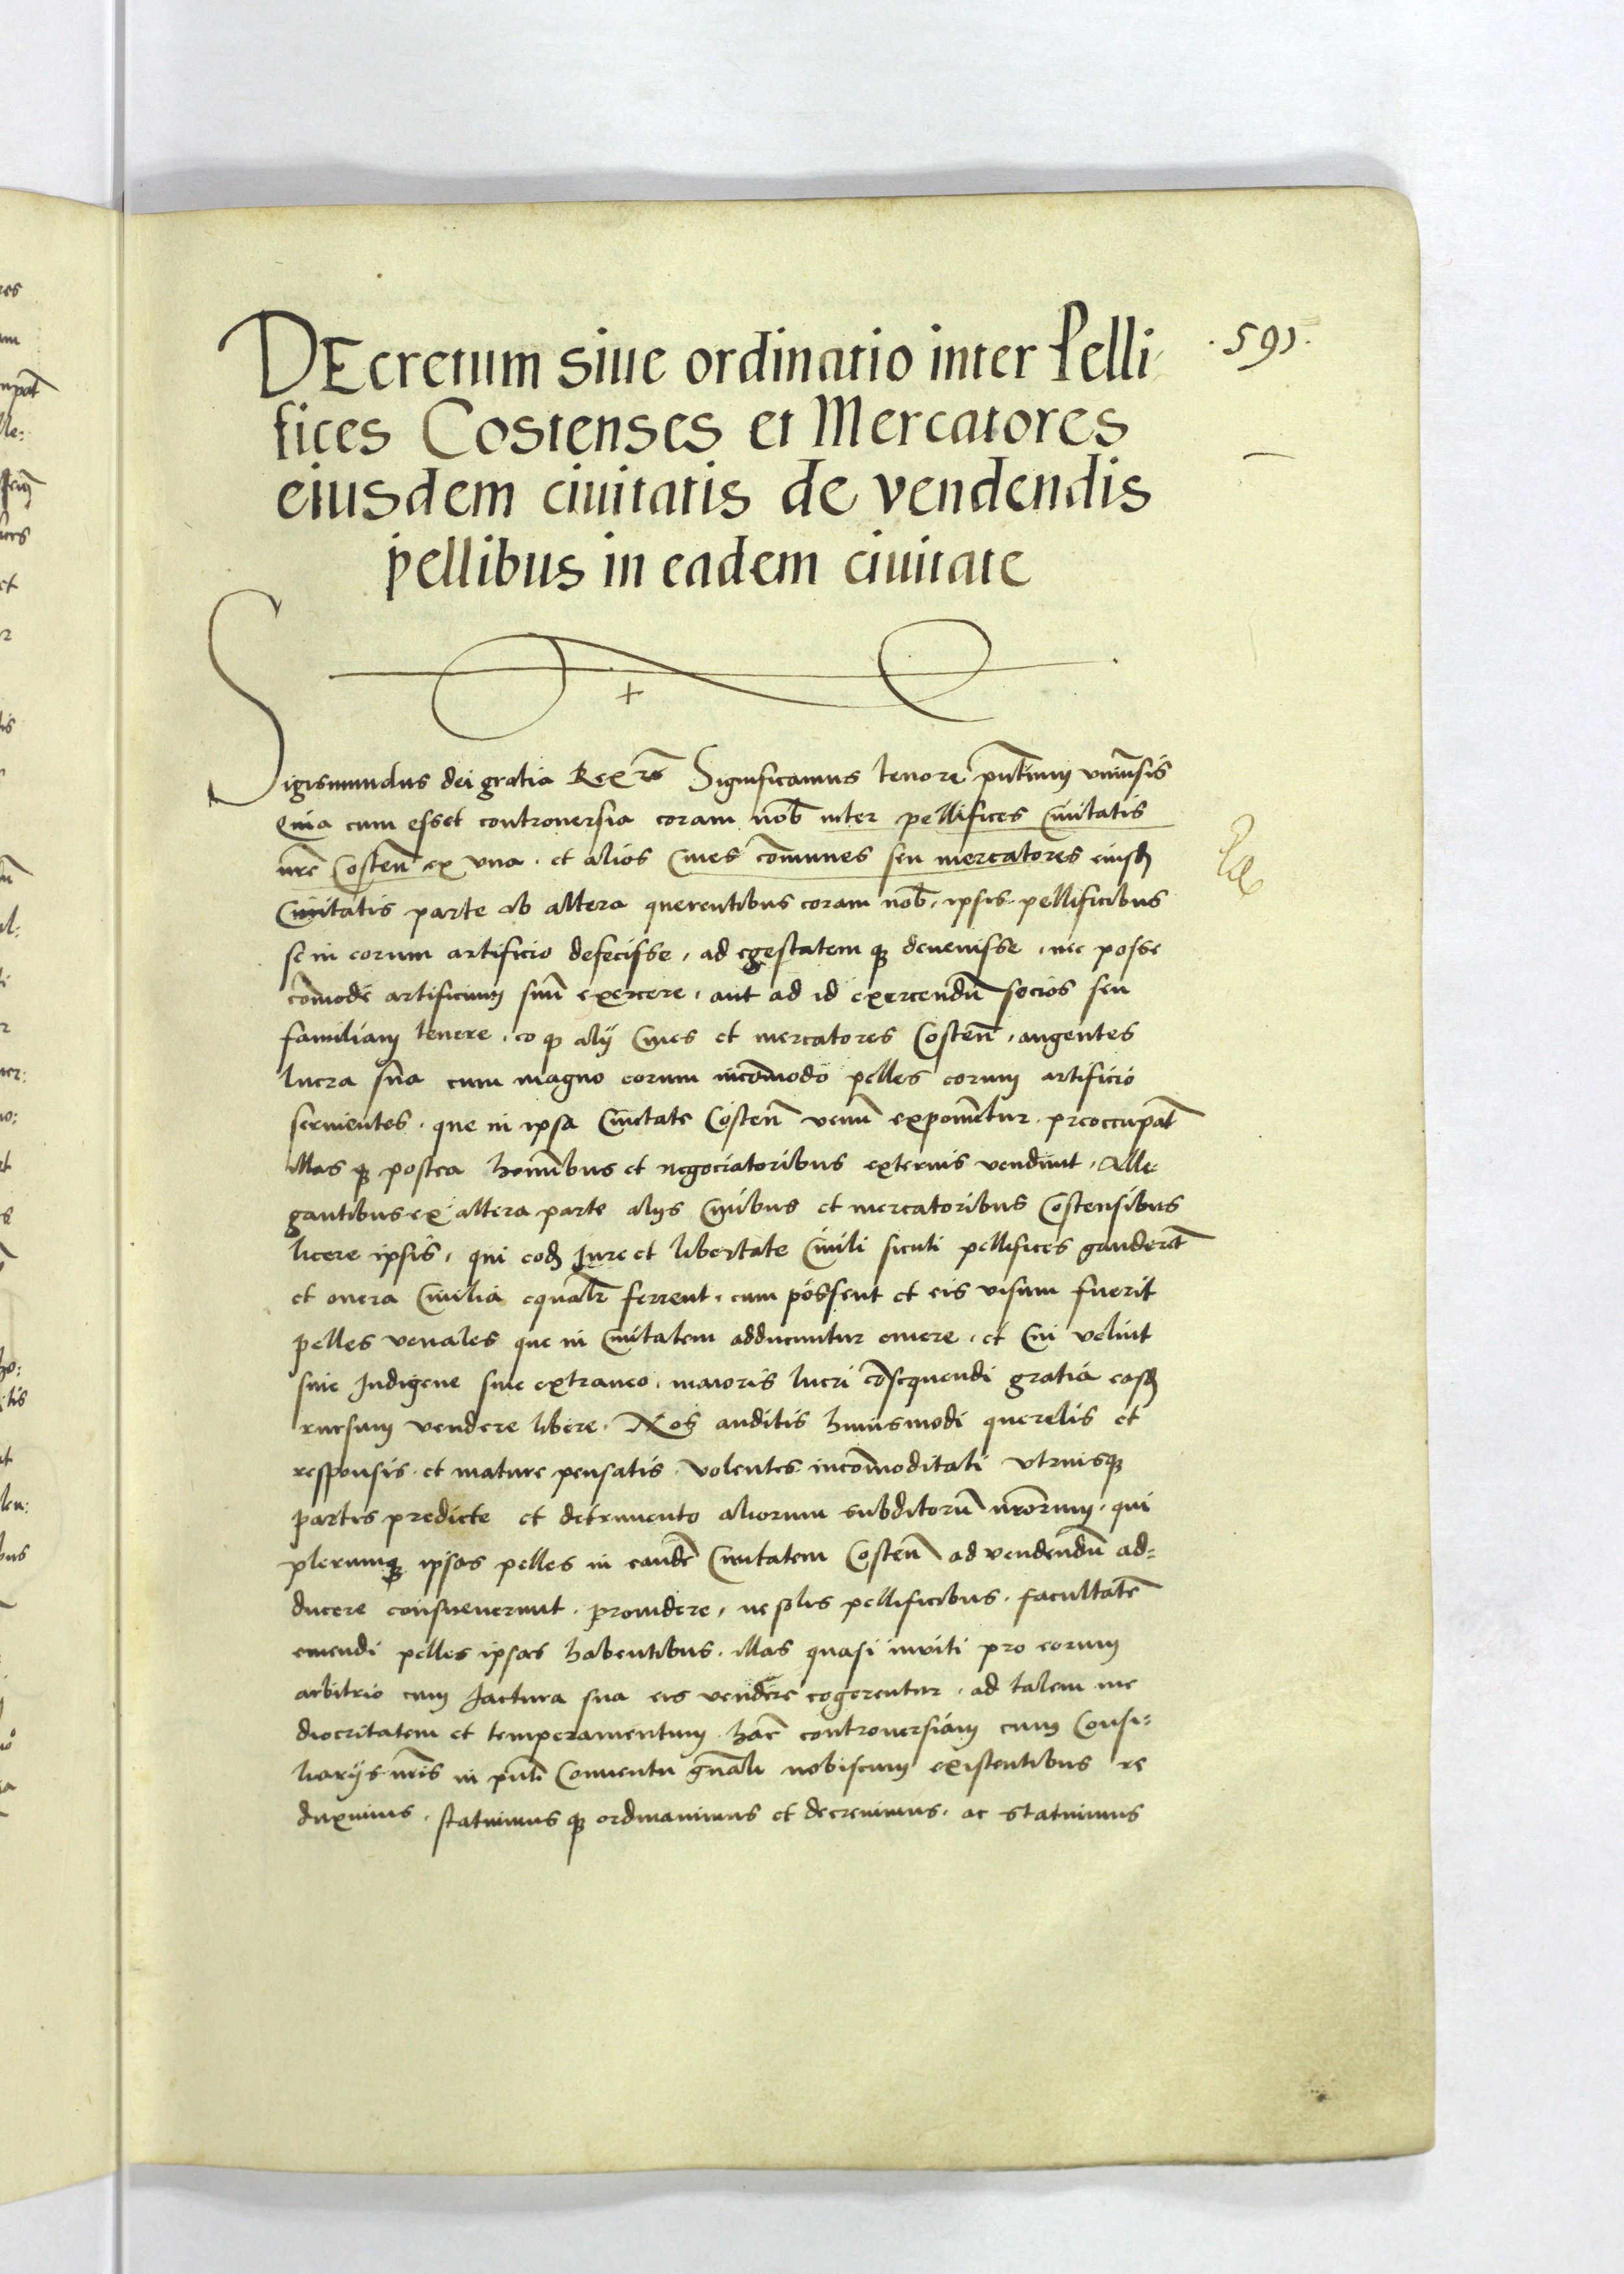 DEcretum siue ordinatio inter Pelli
fices Costenses et Mercatores
eiusdem ciuitatis de vendendis
pellibus in eadem ciuitate
.591.
Sigismundus dei gratia Rex rē Significamus tenore pn̄tium vniūsis
Quia cum esset controuersia coram nob̄ inter pellifices Ciuitatis
nr̄e Costen̄ ex vna. et alios Ciues com̄unes seu mercatores eiusd̄
Ciuitatis parte ab altera querentibus coram nob̄, ipsis pellificibus
se in eorum artificio defecisse, ad egestatem q̨ deuenisse, nec posse
com̄ode artificium suū exercere, aut ad id exercendū socios seu
familiam tenere, eo q̨ alij Ciues et mercatores Costen̄, augentes
lucra sua cum magno eorum incom̄odo pelles eorum artificio
seruientes. que in ipsa Ciuitate Costen̄ venū exponūtur. preoccupāt
illas q̨ postea hoībus et negociatoribus externis vendūt, Alle
gantibus ex altera parte alijs Ciuibus et mercatoribus Costensibus
licere ipsis, qui eod̄ Jure et libertate Ciuili sicuti pellifices gauderēt
et onera Ciuilia equalr̄ ferrent, cum possent et eis visum fuerit
pelles venales que in Ciuitatem adducuntur emere, et Cui velint
siue Indigene siue extraneo, maioris lucri cōsequendi gratia easd̄
rursum vendere libere. Nos auditis huiusmodi querelis et
responsis. et mature pensatis. volentes incom̄oditati vtriusq̨
partis predicte et detrimento aliorum subditorū nr̄orum. qui
plerumq̨ ipsas pelles in eandē Ciuitatem Costen̄ ad vendendū ad=
ducere consueuerunt. prouidere, ne solis pellificibus. facultatē
emendi pelles ipsas habentibus. illas quasi inuiti pro eorum
arbitrio cum Jactura sua eis vendere cogerentur. ad talem me
diocritatem et temperamentum hāc controuersiam cum Consi=
liarijs nr̄is in pn̄ti Conuentu gn̄ali nobiscum existentibus re
duximus. statuimus q̨ ordinauimus et decreuimus. ac statuimus